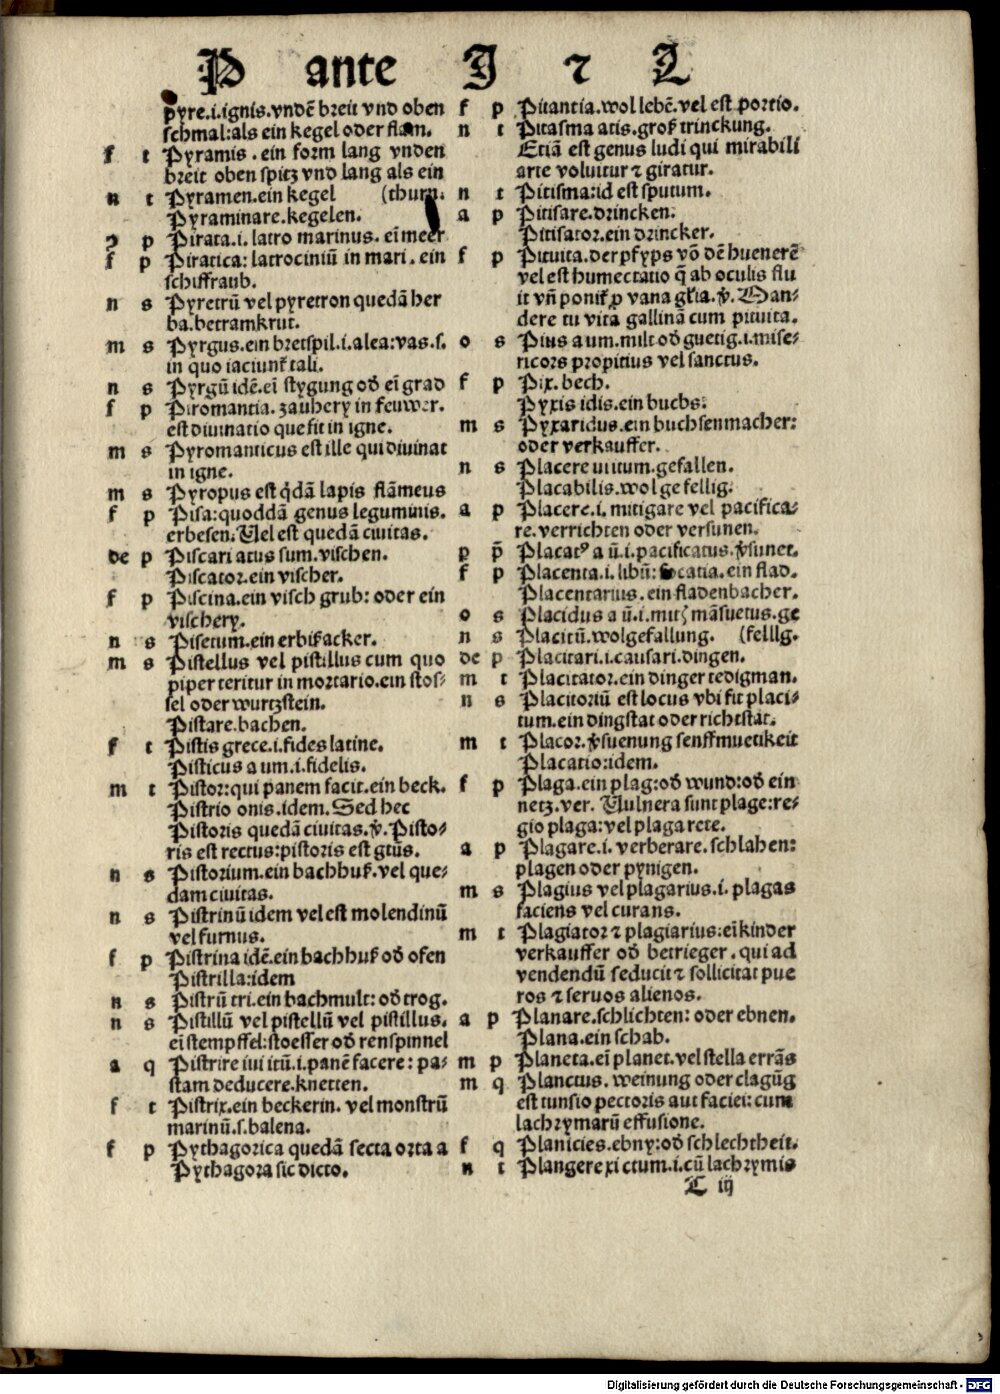 P ante J ⁊ L
pyre.i.ignis.vndē breit vnd oben
schmal:als ein kegel oder flam.
f t Pyramis . ein form lang vnden
breit oben spitz vnd lang als ein
n t Pyramen.ein kegel (thurn.
Pyraminare.kegelen.
p Pirata.i. latro marinus. eī meer
f p Piratica: latrociniū in mari . ein
schiffraub.
n s Pyretrū vel pyretron quedā her
ba.betramkrut.
m s Pyrgus.ein bretspil.i.alea:vas.s.
in quo iaciunt̄ tali.
n s Pyrgū idē.eī stygung od̄ eī grad
f p Piromantia. zaubery in feuwer.
est diuinatio que fit in igne.
m s Pyromanticus est ille qui diuinat
in igne.
m s Pyropus est q̇dā lapis flāmeus
f p Pisa:quoddā genus leguminis.
erbesen.Uel est quedā ciuitas.
de p Piscari atus sum.vischen.
Piscator.ein vischer.
f p Piscina.ein visch grub: oder ein
vischery.
n s Pisetum.ein erbißacker.
m s Pistellus vel pistillus cum quo
piper teritur in mortario.ein stos⸗
sel oder wurtzstein.
Pistare.bachen.
f t Pistis grece.i.fides latine.
Pisticus a um.i.fidelis.
m t Pistor:qui panem facit.ein beck.
Pistrio onis.idem.Sed hec
Pistoris quedā ciuitas.v̄. Pisto⸗
ris est rectus:pistoris est gtūs.
n s Pistorium.ein bachhuß.vel que⸗
dam ciuitas.
n s Pistrinū idem vel est molendinū
vel furnus.
f p Pistrina idē.ein bachhuß od̄ ofen
Pistrilla:idem
n s Pistrū tri.ein bachmult: od̄ trog.
n s Pistillū vel pistellū vel pistillus.
eī stempffel:stoesser od̄ renspinnel
a q Pistrire iui itū.i.panē facere: pa⸗
stam deducere.knetten.
f t Pistrix.ein beckerin. vel monstrū
marinū.s.balena.
f p Pythagorica quedā secta orta a
Pythagora sic dicto.
f p Pitantia.wol lebē.vel est portio.
n t Pitasma atis.groß trinckung.
Etiā est genus ludi qui mirabili
arte voluitur ⁊ giratur.
n t Pitisma:id est sputum.
a p Pitisare.drincken.
Pitisator.ein drincker.
f p Pituita.der pfyps vō dē huenerē
vel est humectatio q̄ ab oculis flu
it vn̄ ponit̄ ꝓ vana gl̄ia.v̄. Man⸗
dere tu vita gallinā cum pituita.
o s Pius a um.milt od̄ guetig.i.mise⸗
ricors propitius vel sanctus.
f p Pix. bech.
Pyxis idis.ein buchs.
m s Pyxaridus.ein buchsenmacher:
oder verkauffer.
n s Placere ui itum.gefallen.
Placabilis.wol gefellig.
a p Placere.i. mitigare vel pacifica⸗
re.verrichten oder versunen.
p p̄ Placatꝰ a ū.i.pacificatus.v̄sunet.
f p Placenta.i. libū: ein flad.
Placentarius. ein fladenbacher.
o s Placidus a ū.i.mitꝫ māsuetus.ge
n s Placitū.wolgefallung. (fellig.
de p Placitari.i.causari.dingen.
m t Placitator.ein dinger tedigman.
n s Placitoriū est locus vbi fit placi⸗
tum.ein dingstat oder richtstat.
m t Placor.v̄suenung senffmuetikeit
Placatio:idem.
f p Plaga.ein plag:od̄ wund:od̄ ein
netz.ver. Uulnera sunt plage:re⸗
gio plaga:vel plaga rete.
a p Plagare.i. verberare.schlahen:
plagen oder pynigen.
m s Plagius vel plagarius.i. plagas
faciens vel curans.
m t Plagiator ⁊ plagiarius:eī kinder
verkauffer od̄ betrieger . qui ad
vendendū seducit ⁊ sollicitat pue
ros ⁊ seruos alienos.
a p Planare.schlichten: oder ebnen.
Plana.ein schab.
m p Planeta.eī planet.vel stella errās
m q Planctus. weinung oder clagūg
est tunsio pectoris aut faciei: cum
lachrymarū effusione.
f q Planicies.ebny:od̄ schlechtheit.
n t Plangere xi ctum.i.cū lachrymis
T iij
Digitalisierung gefördert durch die Deutsche Forschungsgemeinschaft - DFG